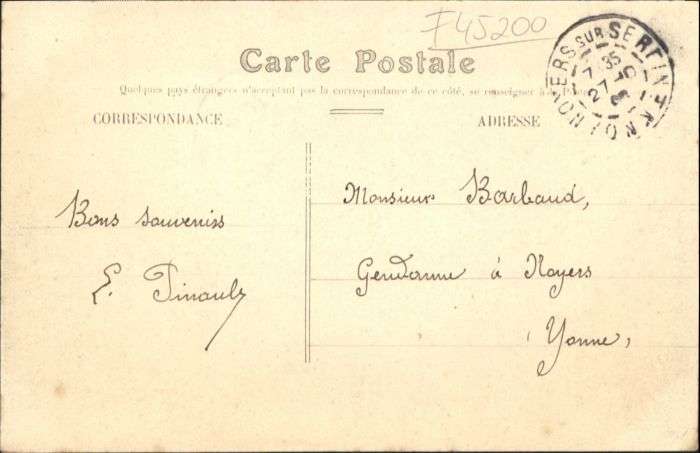 F45200
Carte Postale
Quelques pays étrangers n'acceptent pas la correspondance de ce côté, se renseigner à la Poste
CORRESPONDANCE
ADRESSE
NOYERS SUR SEREIN
7 35
27
YONNE
Bons souvenirs
E. Pinault
Monsieur Barbaud,
Gendarme à Noyers
Yonne,